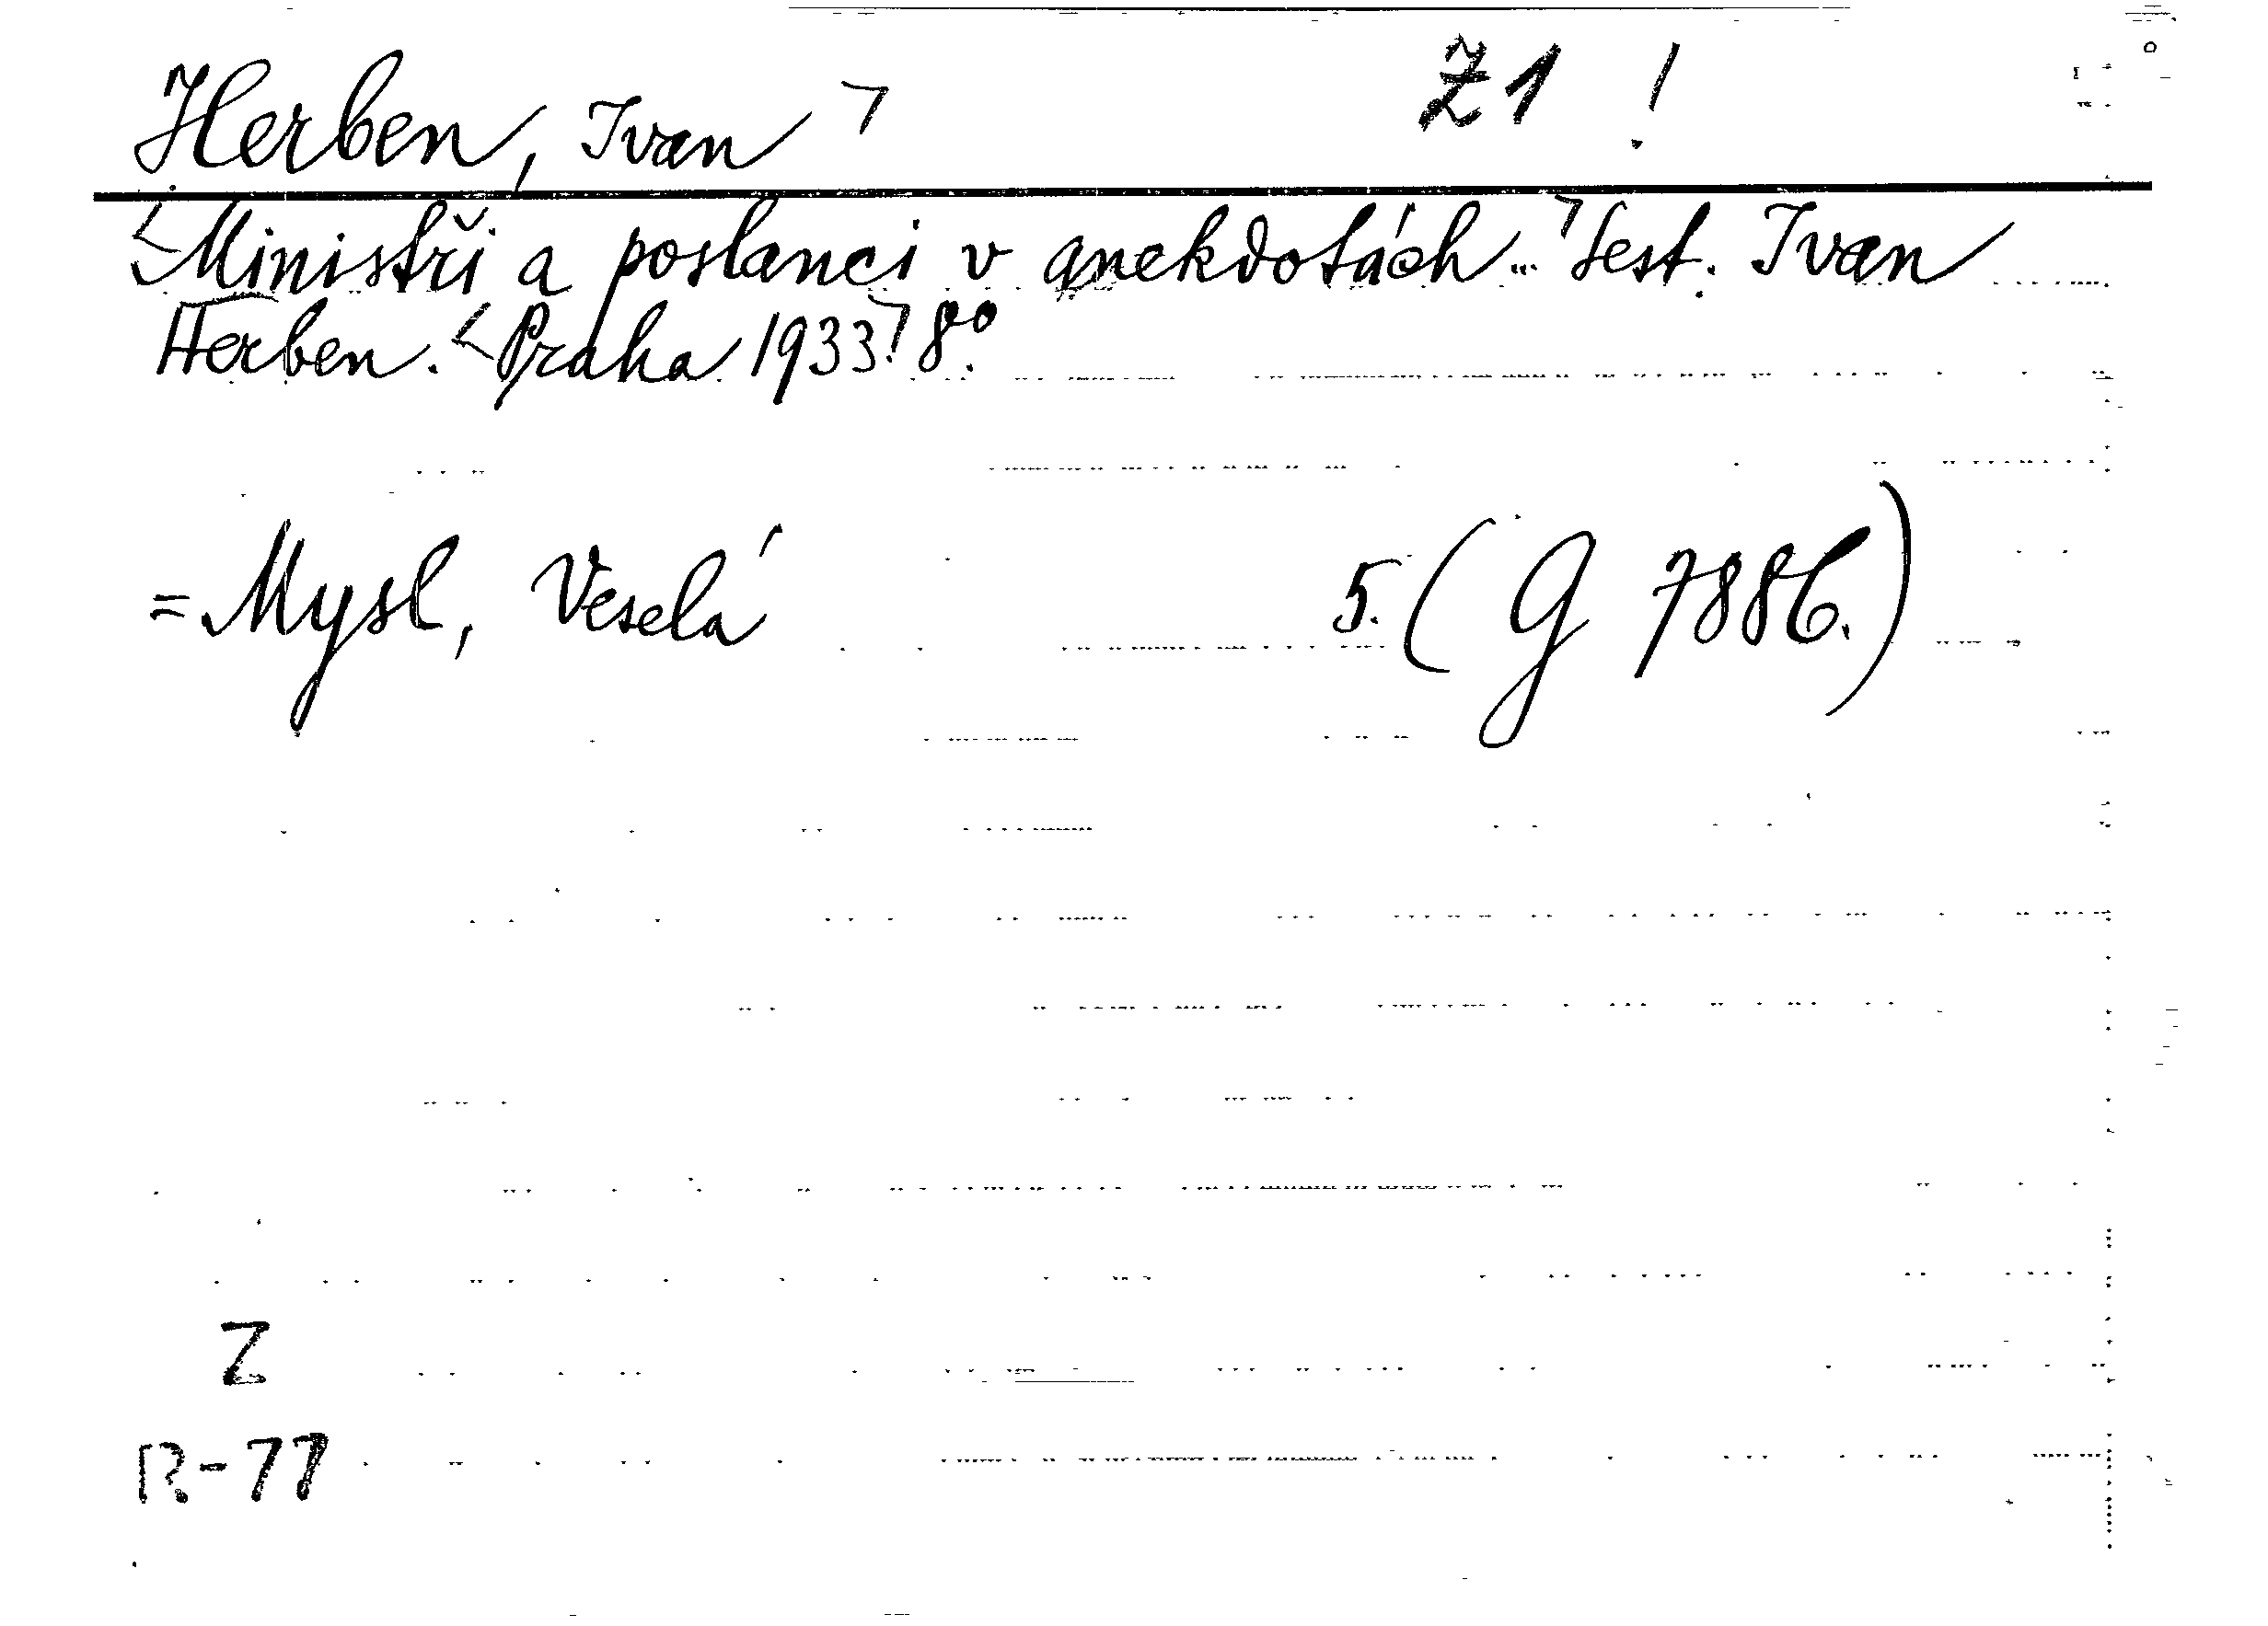 Herben, Ivan ㄱ Z1 !
<Ministři a poslanci v anekdotách... ㄱ Sest. Ivan
Herben. <Praha 1933.ㄱ 8°.
= Mysl, Veselá 5. (G 7886.)
Z
R-77